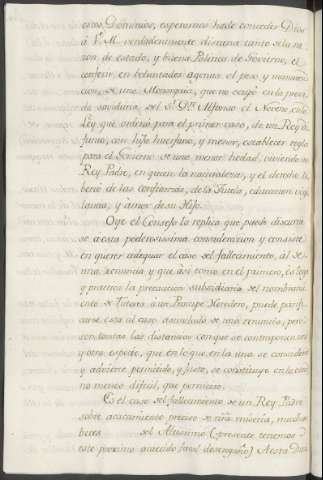 estos Dominios, esperamos hade conceder Dios
á V. M. verdaderamente disuena tanto á la ra-
zon de estado, y buena Politica de Govierno, el
conferir en voluntades agenas el peso y
cion, de una Monarquia, que no cupo en la previ-
da savíduria del Sr. Dn. Alfonso el Noveno, en la
Ley que ordenó para el primer caso, de un Rey di-
funto, con hijo huerfano, y menor, establecer regla
para el Govierno de una menor hedad, viviendo su
Rey Padre, en quien la naturaleza, y el derecho
las confianzas, de la Tutela, educacion vigi-
lancia, y amor de su Hijo.
Oye el Consejo la replica que puede discurrir-
se á esta poderosisima consideracion y consiste
en querer adequar el caso del fallecimiento, al de
una renuncia y que asi como en el primero, es Ley
y practica la precaucion subsidiaria del nombrami-
ento de Tutores á un Principe Heredero, puede
carse esta al caso de una renuncia, pero
son tantas las distancias con que se contraponen una
y otra especie, que en lo que, en la una se considera
y advierte permitido, y justo, se constituye en la otra
no menos dificil, que pernicioso.
Es el caso del fallecimiento de un Rey Padre
sobre acaecimiento preciso de ntra miseria, muchas
beces del Altisimo (presente tenemos
este proximo acaecido fatal desengaño) Nesta Dura